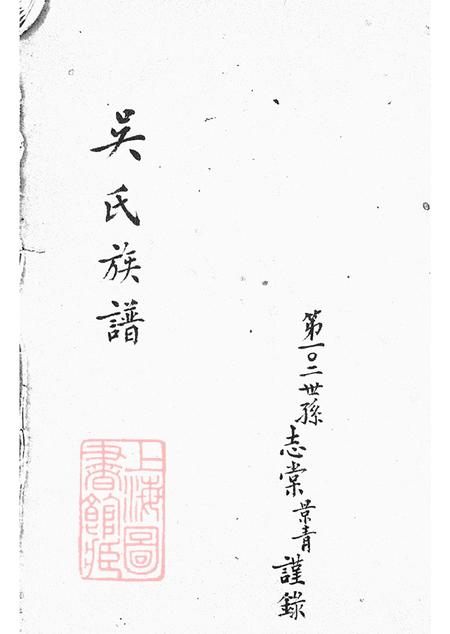 第一〇二世孫志棠景青謹錄
吳氏族譜
上海圖
書館藏